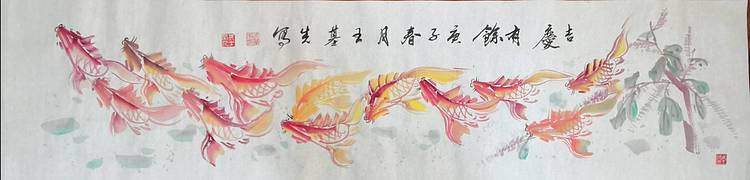 吉慶有餘庚子春月王慕先寫